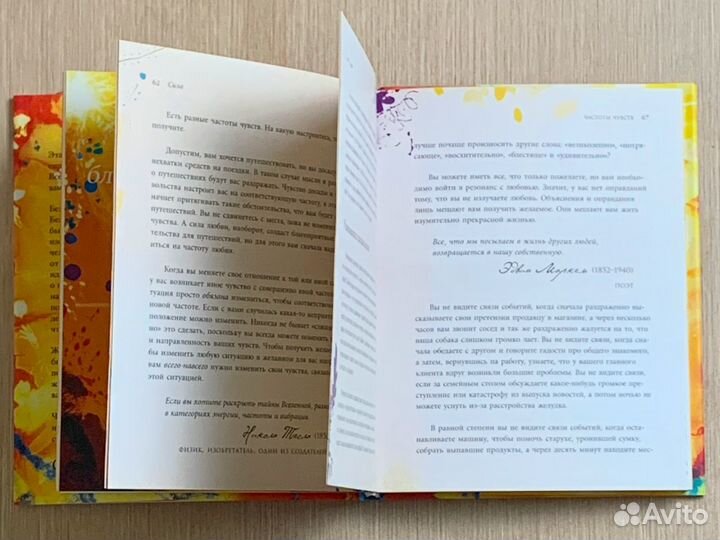 62 Сила
Есть разные частоты чувств. На какую настроитесь, т
получите.
Допустим, вам хочется путешествовать, но вы
нехватки средств на поездки. В таком случае мысли и раз
о путешествиях будут вас раздражать. Чувство досады и
вольства настроит вас на соответствующую частоту, и эт
начнет притягивать такие обстоятельства, что вам будет
путешествий. Вы не сдвинетесь с места, пока не измени
А сила любви, наоборот, создаст благоприятны
тельства для путешествий, но для этого вам сначала над
иться на частоту любви.
Когда вы меняете свое отношение к той или иной си
у вас возникает иное чувство с совершенно иной частотой
туация просто обязана измениться, чтобы соответствова
новой частоте. Если с вами случилась какая-то неприят
положение можно изменить. Никогда не бывает «слиш
но» это сделать, поскольку вы всегда можете поменять
и направленность ваших чувств. Чтобы получить желаем
бы изменить любую ситуацию в желанном для вас напра
вам всего-навсего нужно изменить свои чувства, связанн
этой ситуацией.
Если вы хотите раскрыть тайны Вселенной, разм
в категориях энергии, частоты и вибрации.
Никола Тесла (185
ФИЗИК, ИЗОБРЕТАТЕЛЬ, ОДИН ИЗ СОЗДАТЕЛЕЙ
ЧАСТОТЫ ЧУВСТВ 67
лучше почаще произносить другие слова: «великолепно», «потря-
сающе», «восхитительно», «блестяще» и «удивительно»?
Вы можете иметь все, что только пожелаете, но вам необхо-
димо войти в резонанс с любовью. Значит, у вас нет оправданий
тому, что вы не излучаете любовь. Объяснения и оправдания
лишь мешают вам получить желаемое. Они мешают вам жить
изумительно прекрасной жизнью.
Все, что мы посылаем в жизнь других людей,
возвращается в нашу собственную.
Эдвин Маркем (1852–1940)
ПОЭТ
Вы не видите связи событий, когда сначала раздраженно вы-
сказываете свои претензии продавцу в магазине, а через несколько
часов вам звонит сосед и так же раздраженно жалуется на то, что
ваша собака слишком громко лает. Вы не видите связи, когда сна-
чала обедаете с другом и говорите гадости про общего знакомого,
а затем, вернувшись на работу, узнаете, что у вашего главного
клиента вдруг возникли большие проблемы. Вы не видите связи,
если за семейным столом обсуждаете какое-нибудь громкое пре-
ступление или катастрофу из выпуска новостей, а потом ночью не
можете уснуть из-за расстройства желудка.
В равной степени вы не видите связи событий, когда оста-
навливаете машину, чтобы помочь старухе, уронившей сумку,
собрать выпавшие продукты, а через десять минут находите мес-
Avito